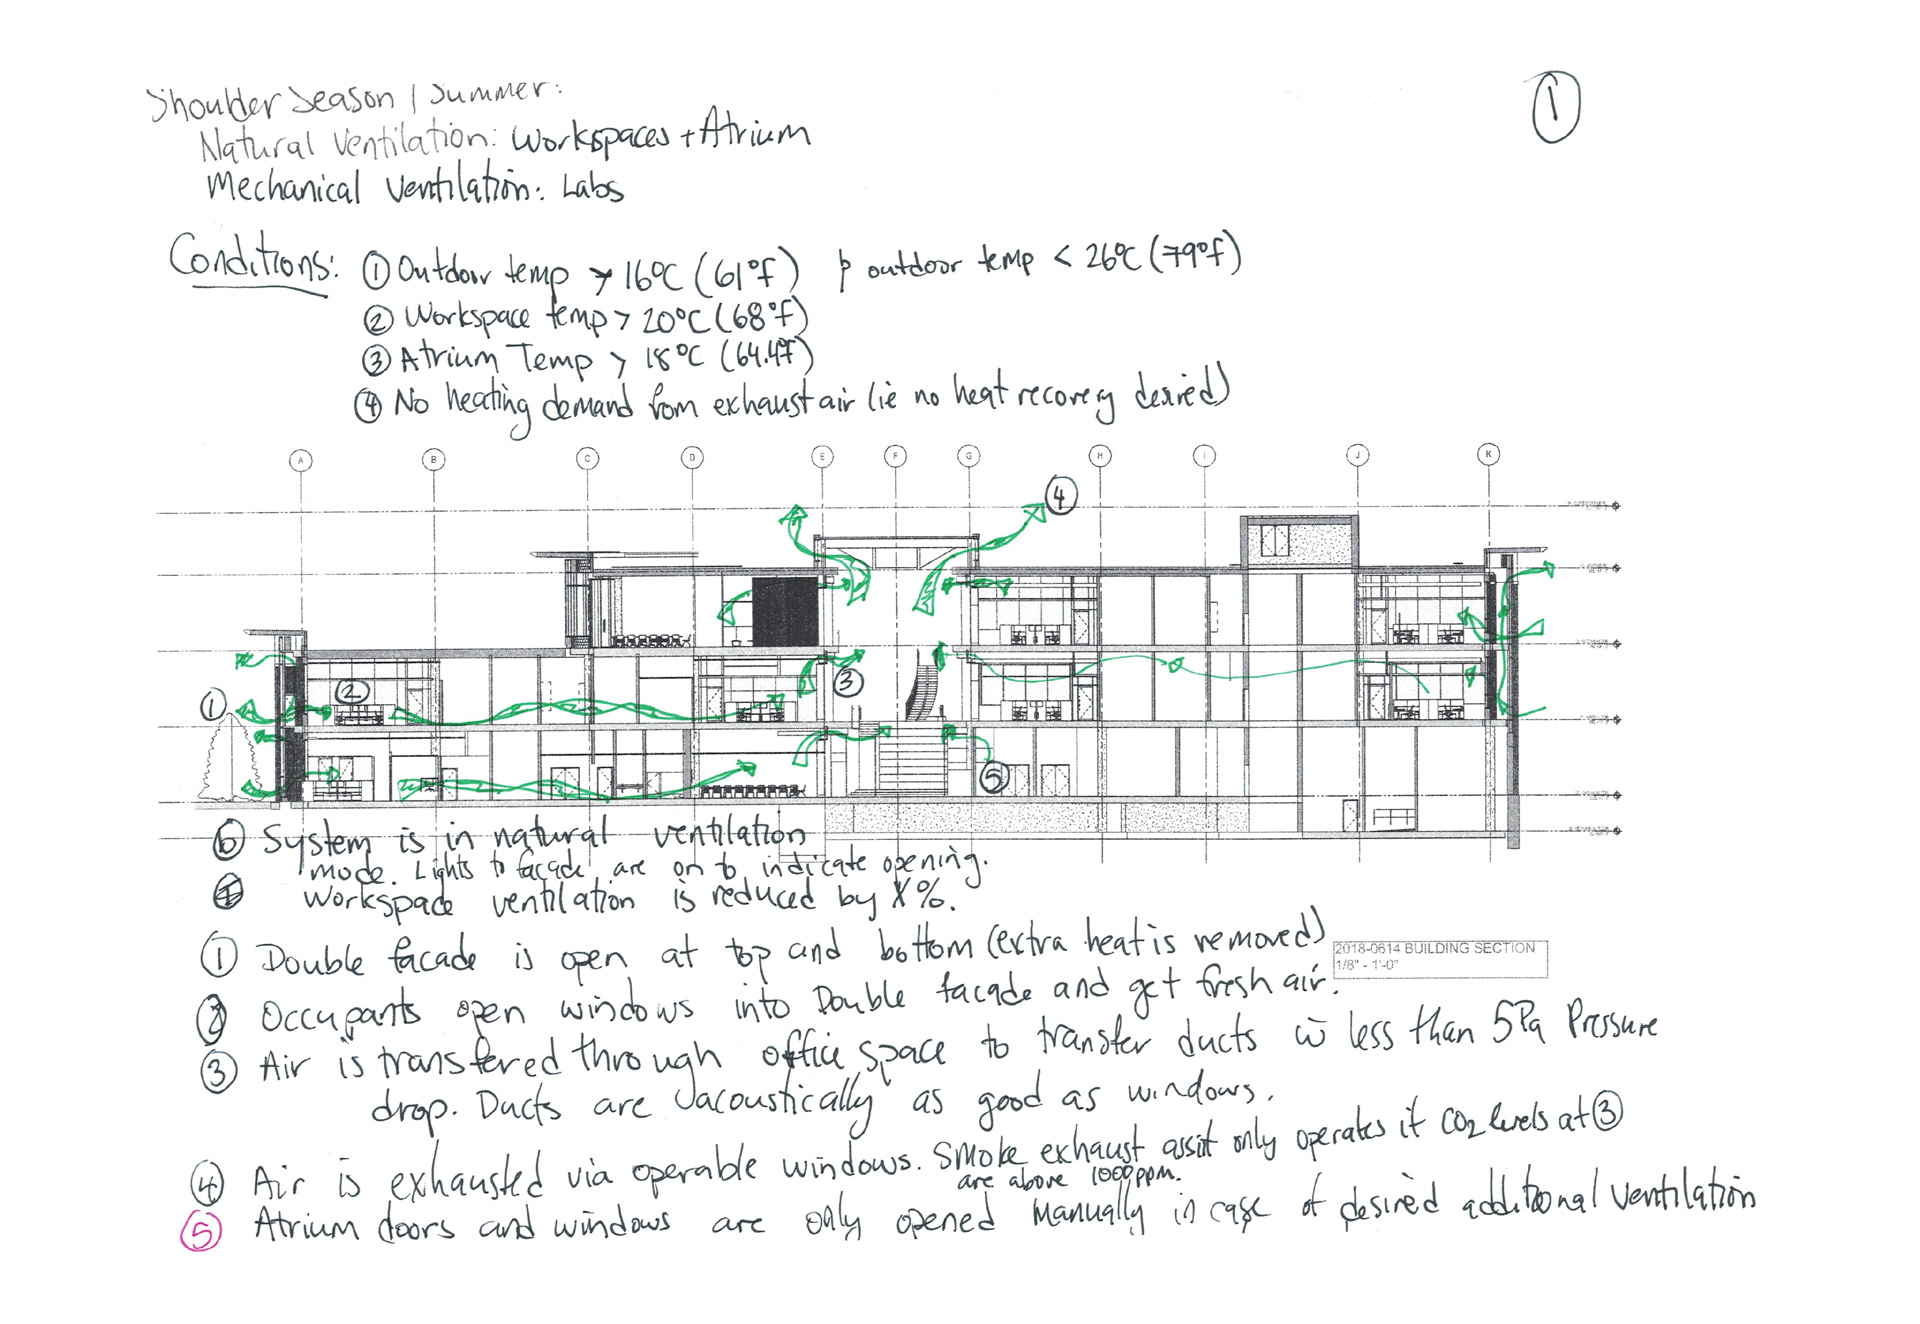 Shoulder Season / Summer:
①
Natural Ventilation: Workspaces + Atrium
Mechanical Ventilation: Labs
Conditions: ① Outdoor temp > 16°C (61°F) & outdoor temp < 26°C (79°F)
② Workspace temp > 20°C (68°F)
③ Atrium Temp > 18°C (64.4°F)
④ No heating demand from exhaust air (ie no heat recovery desired)
A B C D E F G H I J K
④
① ② ③
⑤
⑥ System is in natural ventilation
mode. Lights to facade are on to indicate opening.
Workspace ventilation is reduced by X%.
① Double facade is open at top and bottom (extra heat is removed)
2018-0614 BUILDING SECTION
1/8" - 1'-0"
② Occupants open windows into Double facade and get fresh air.
③ Air is transfered through office space to transfer ducts w less than 5Pa Pressure
drop. Ducts are acoustically as good as windows.
④ Air is exhausted via operable windows. Smoke exhaust assist only operates if CO2 levels at ③
are above 1000ppm.
⑤ Atrium doors and windows are only opened manually in case of desired additional ventilation